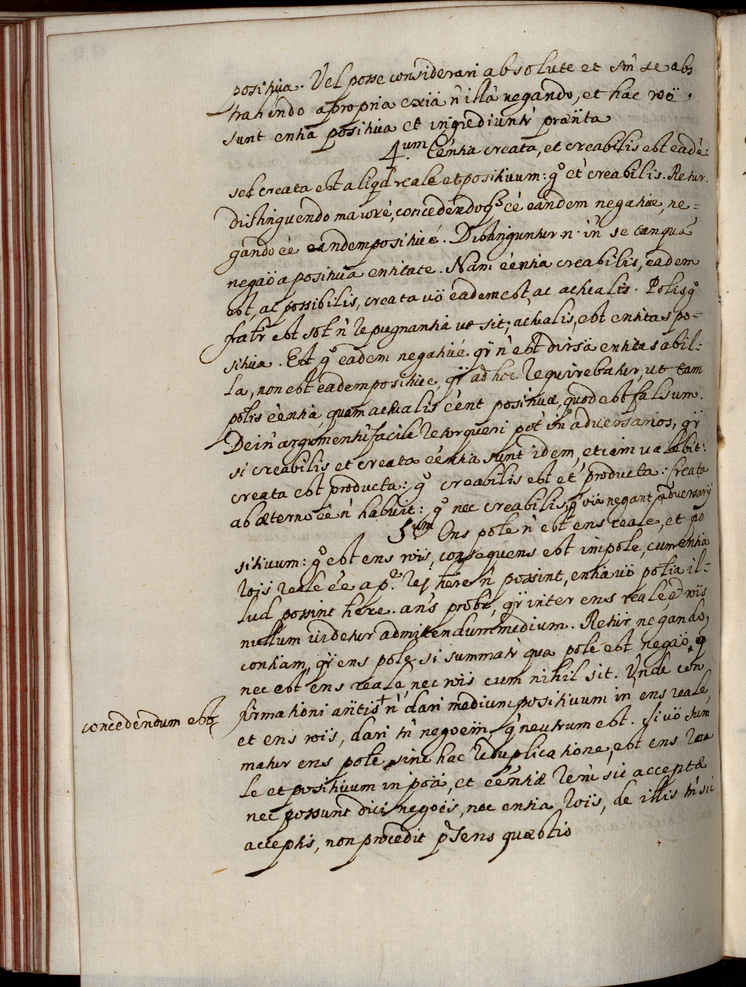 positiua. Vel posse considerari absolute et sm̃ se abs
trahendo a propria exĩa ñ illã negando, et hac rõe
sunt entia positiua et ingrediuntr
4um. Eẽntia creata, et creabilis est eadẽ:
sed creata est aliqd reale et positiuum: go et creabilis. Retur.
distinguendo maiorẽ, concedendo eẽ eandem negatiue, ne=
gando eẽ eandem positiuẽ. Distinguntur n. in se tanquã
negaõ a positiua entitate. Nam eẽntia creabilis, eadem
est, ac possibilis, creata uõ eadem est, ac actualis. Polis go
est sol ñ repugnantia ut sit; actualis, est entitas po=
sitiua. Est go eadem negatiuẽ qr̃ ñ est diuersa entitas ab il=
la, non est eadem positiue, qr̃ ad hoc requirebatur, ut tam
polis eẽntia, quam actualis eẽnt positiuæ, quod est falsum.
Dein argumentũ facile retorqueri pot in aduersarios, qr̃
si creabilis et creata eẽntia sunt idem, etiam ualebit:
creata est producta: go creabilis est et producta: creata
ab æterno eẽ ñ habuit: go nec creabilis, quia negant aduersarij
5um Ens pole ñ est ens reale, et po
sitiuum: go est ens rõis, consequens est impole, cum entia
rõis reale eẽ a pe. rei hẽre ñ possint, entia uõ potĩa il=
lud possint hẽre. ans probr, qr̃ inter ens reale et rõis
nullum uidetur admittendum medium. Retur negando,
contiam, qr̃ ens pole si summatr qua pole est negaõ, q
nec est ens reale, nec rõis cum nihil sit. Unde con
firmationi añtis + ñ dari medium positiuum inr ens reale,
concedendum est
et ens rõis, dari tñ negoem̃, q neutrum est. Si uõ sum
matur ens pole sine hac reduplicatione, est ens rea
le et positiuum in põa, et eẽntiæ rerũ sic acceptæ
nec possunt dici negoẽs, nec entia rõis, de illis tñ sic
acceptis, non procedit præsens quæstio